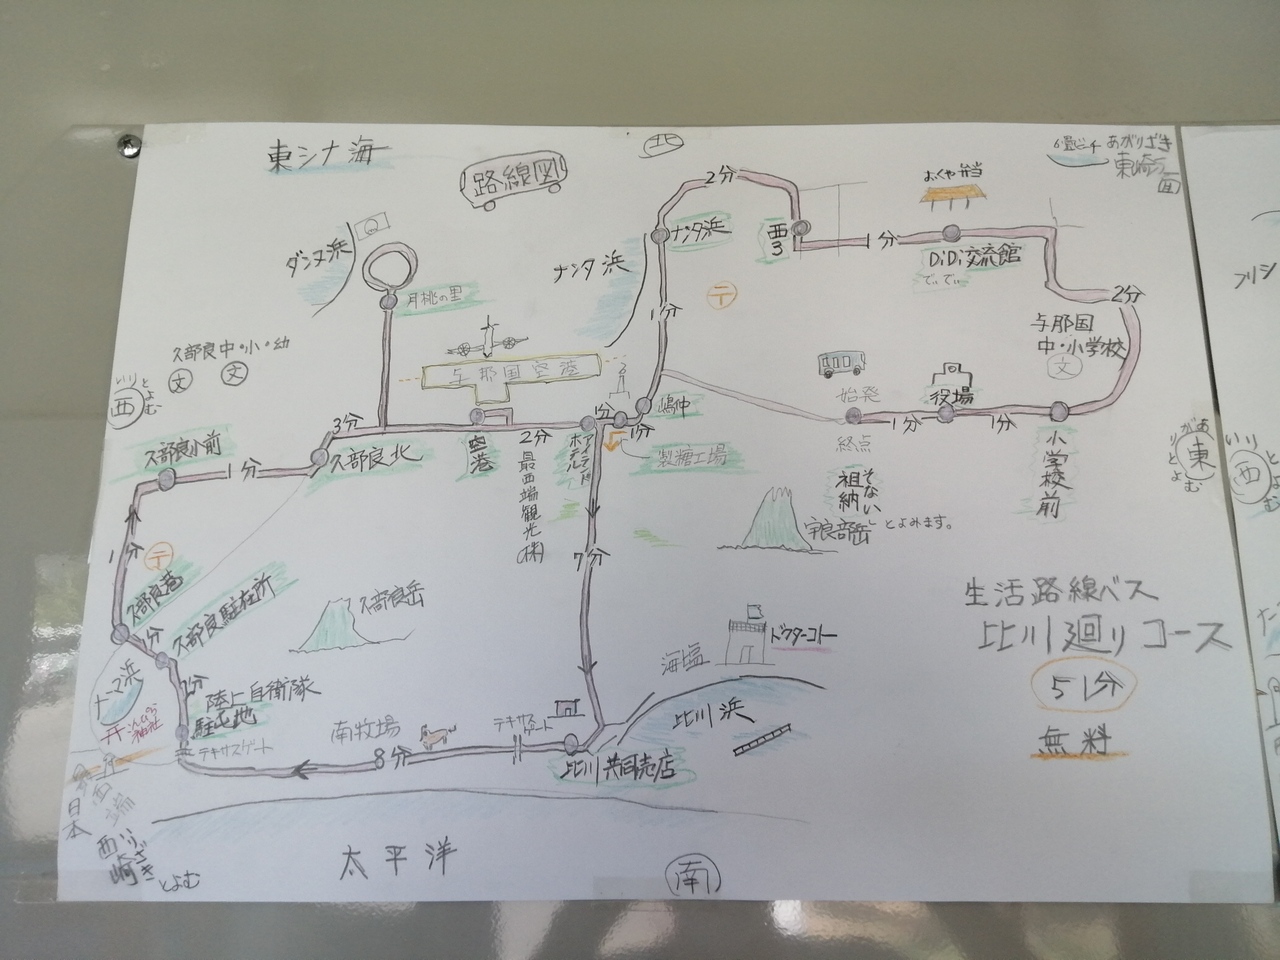 東シナ海
路線図
北
6畳ビーチ
あがりざき
東崎
ダンヌ浜
月桃の里
ナンタ浜
ナンタ浜
2分
西3
1分
おくや弁当
DiDi交流館
でぃでぃ
2分
与那国
中・小学校
文
〒
1分
久部良中・小・幼
文 文
いり
西
とよむ
与那国空港
始発
終点
祖納
そない
とよみます。
役場
1分
1分
小学校前
あがり
東
とよむ
いり
西
とよむ
3分
久部良小前
1分
久部良北
空港
2分
最西端観光(株)
アイランドホテル
1分
1分
嶋仲
製糖工場
宇良部岳
7分
1分
〒
久部良港
1分
久部良駐在所
久部良岳
ナーマ浜
陸上自衛隊
駐屯地
テキサスゲート
南牧場
8分
テキサスゲート
比川共同売店
海塩
ドクターコトー
比川浜
生活路線バス
比川廻りコース
51分
無料
日本
西端
西崎
いりざき
とよむ
太平洋
南